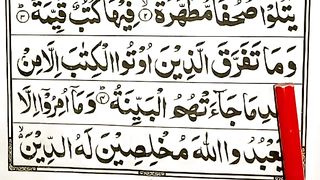 يَتْلُوْا صُحُفًا مُّطَهَّرَةً ۙ﴿۲﴾ فِيْهَا كُتُبٌ قَيِّمَةٌ ؕ﴿۳﴾
وَمَا تَفَرَّقَ الَّذِيْنَ اُوْتُوا الْكِتٰبَ اِلَّا مِنْۢ
بَعْدِ مَا جَآءَتْهُمُ الْبَيِّنَةُ ؕ﴿۴﴾ وَمَاۤ اُمِرُوْۤا اِلَّا
لِيَعْبُدُوا اللّٰهَ مُخْلِصِيْنَ لَهُ الدِّيْنَ ۙ۬